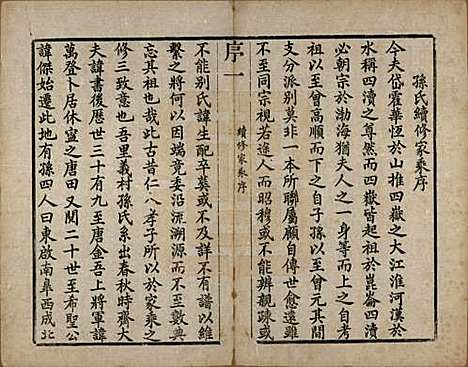 孫氏續修家乘序
今夫岱霍華恆於山推四嶽之大江淮河漢於
水稱四瀆之尊然而四嶽皆起祖於崑崙四瀆
必朝宗於渤海猶夫人之一身等而上之自考
祖以至曾高順而下之自子孫以至曾元其間
支分派别莫非一本所聯屬顧自傳世愈遠雖
不至同宗視若途人而昭穆或不能辨親疎或
續修家乘序
序一
不能别氏諱生配卒𦵏或不及譜不有譜以維
繫之將何以因端竟委沿流溯源而不致數典
忘其祖也此古昔仁人孝子所以於家乘之
修三致意也吾里義村孫氏系出春秋時齊大
夫諱書後歷世三十有九至唐金吾上將軍諱
萬登卜居休寧之唐田又閱二十世至希聖公
諱傑始遷此地有孫四人曰東啟南阜西成北